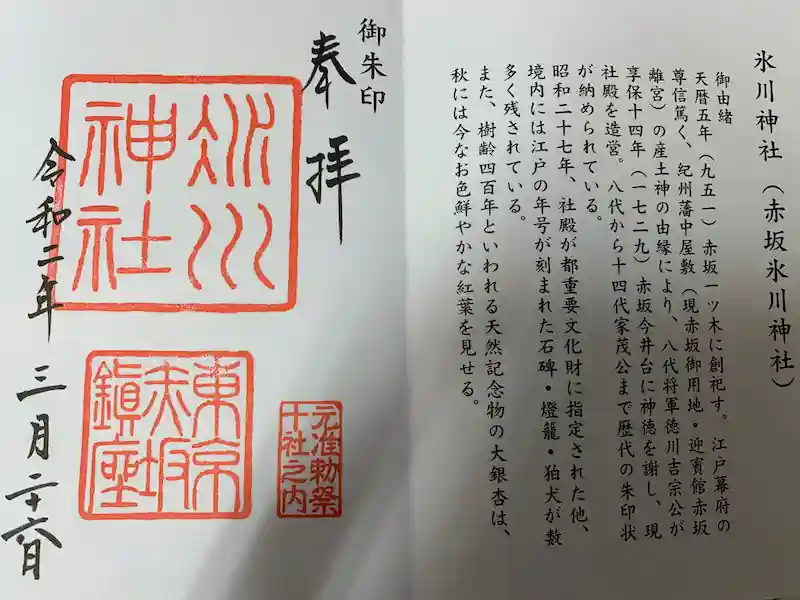 氷川神社（赤坂氷川神社）
御由緒
天暦五年（九五一）赤坂一ツ木に創祀す。江戸幕府の
尊信篤く、紀州藩中屋敷（現赤坂御用地・迎賓館赤坂
離宮）の産土神の由縁により、八代将軍徳川吉宗公が
享保十四年（一七二九）赤坂今井台に神徳を謝し、現
社殿を造営。八代から十四代家茂公まで歴代の朱印状
が納められている。
昭和二十七年、社殿が都重要文化財に指定された他、
境内には江戸の年号が刻まれた石碑・燈籠・狛犬が数
多く残されている。
また、樹齢四百年といわれる天然記念物の大銀杏は、
秋には今なお色鮮やかな紅葉を見せる。
御朱印
奉拝
氷川
神社
元准勅祭
十社之内
東京
赤坂
鎭座
令和二年 三月二十六日